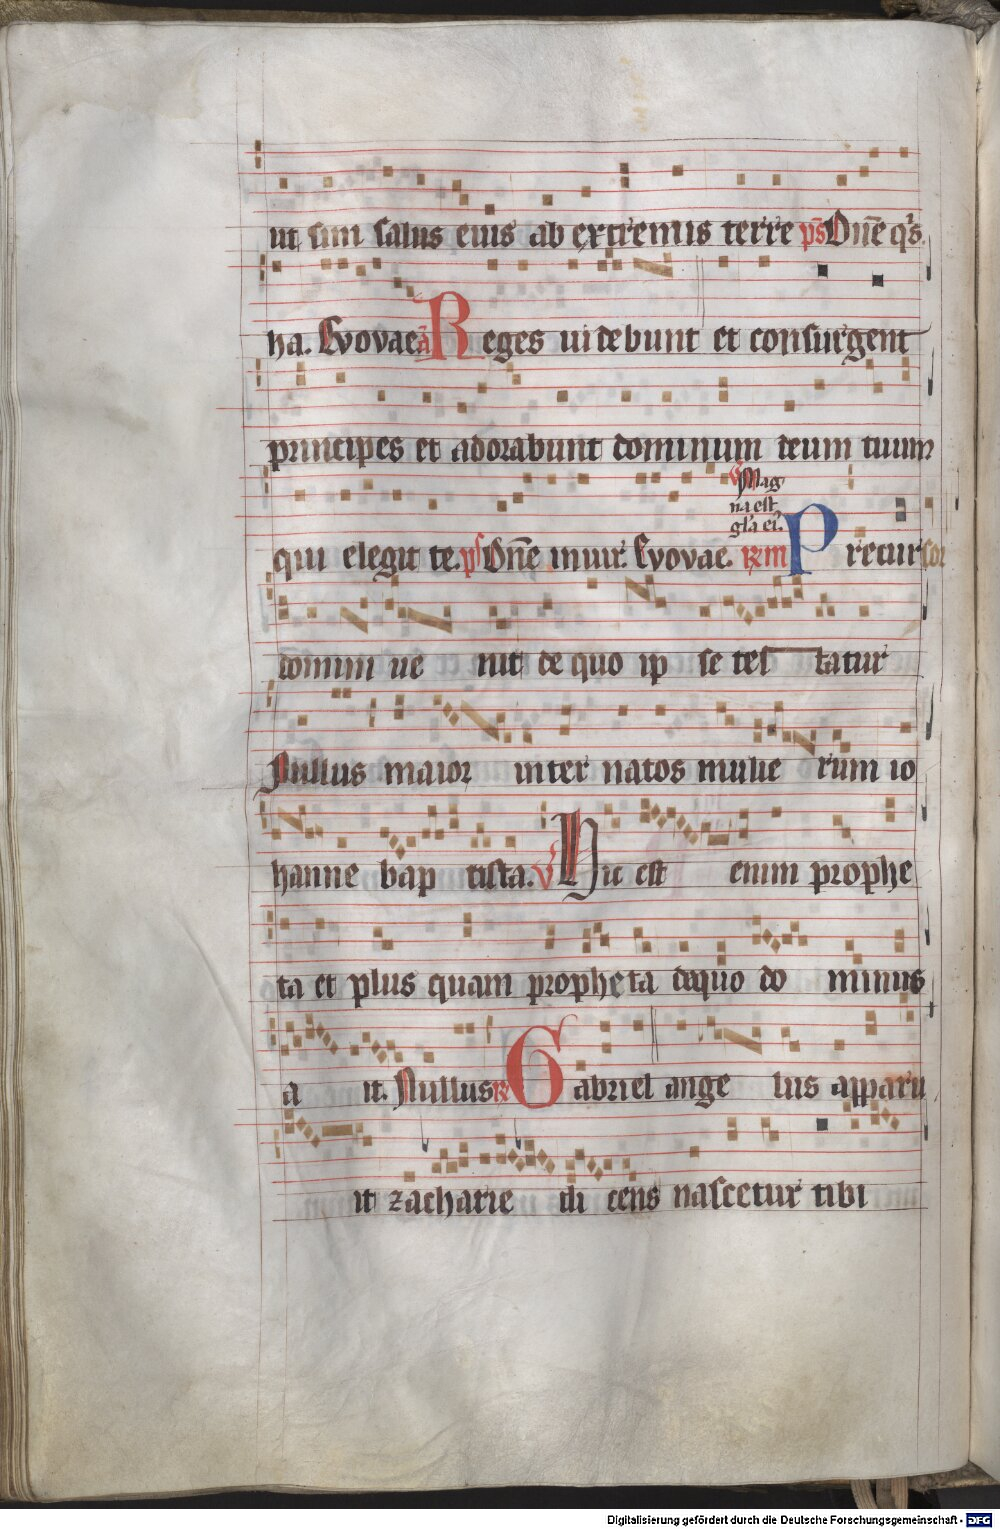 ut sim salus eius ab extremis terre ps Dñe q's
ha. Evovae a Reges uidebunt et consurgent
principes et adorabunt dominum deum tuum
Mag
na est
gl'a ei'.
qui elegit te. ps Dñe in uir. Evovae. Precursor
domini ue nit de quo ip se tes tatur
Nullus maior inter natos mulie rum io
hanne bap tista. V Hic est enim prophe
ta et plus quam propheta dequo do minus
a it. Nullus Gabriel ange lus apparu
it zacharie di cens nascetur tibi
Digitalisierung gefördert durch die Deutsche Forschungsgemeinschaft - DFG